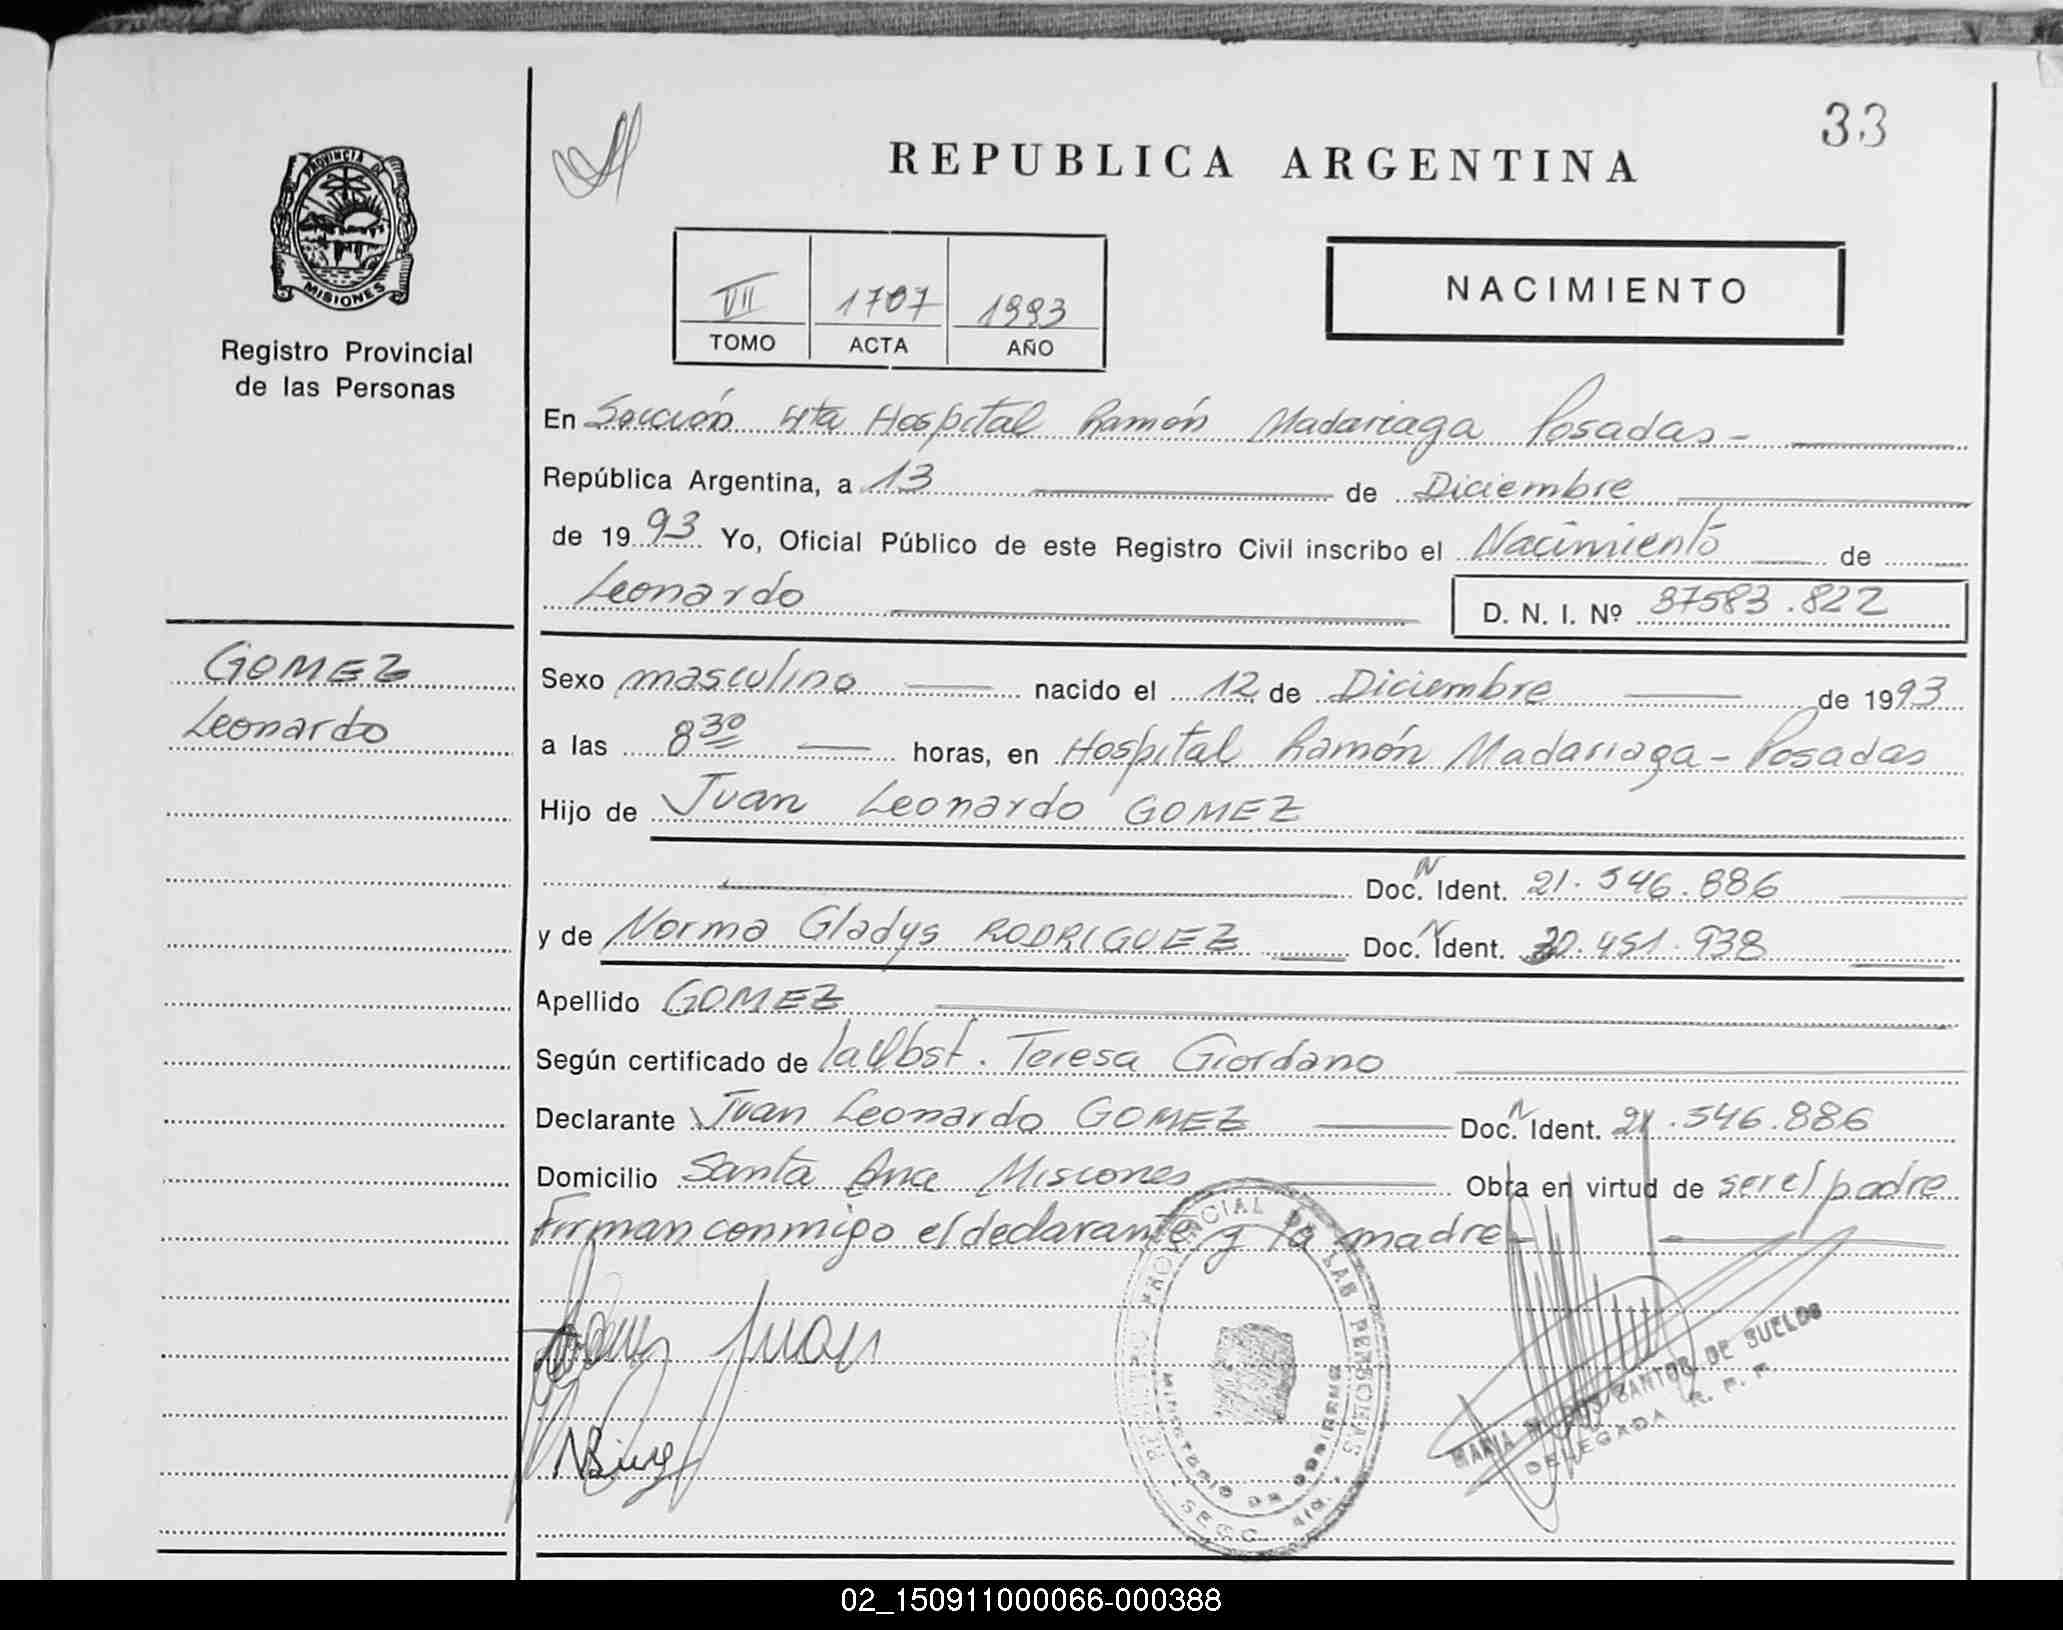 33
REPUBLICA ARGENTINA
PROVINCIA DE
MISIONES
Registro Provincial
de las Personas
VII 1707 1993
TOMO ACTA AÑO
NACIMIENTO
En Sección 4ta Hospital Ramón Madariaga Posadas -
República Argentina, a 13 de Diciembre
de 1993 Yo, Oficial Público de este Registro Civil inscribo el Nacimiento de
Leonardo D. N. I. Nº 37583.822
GOMEZ
Leonardo
Sexo masculino nacido el 12 de Diciembre de 1993
a las 8 30 horas, en Hospital Ramón Madariaga - Posadas
Hijo de Juan Leonardo GOMEZ
Doc. N Ident. 21.546.886
y de Norma Gladys RODRIGUEZ Doc. N Ident. 20.451.938
Apellido GOMEZ
Según certificado de la Obst. Teresa Giordano
Declarante Juan Leonardo GOMEZ Doc. N Ident. 21.546.886
Domicilio Santa Ana Misiones Obra en virtud de ser el padre
Firman conmigo el declarante y la madre -
REGISTRO PROVINCIAL DE LAS PERSONAS
Juan
MARIA SANTOS DE SUELDO
DELEGADA R. P. P.
02_150911000066-000388